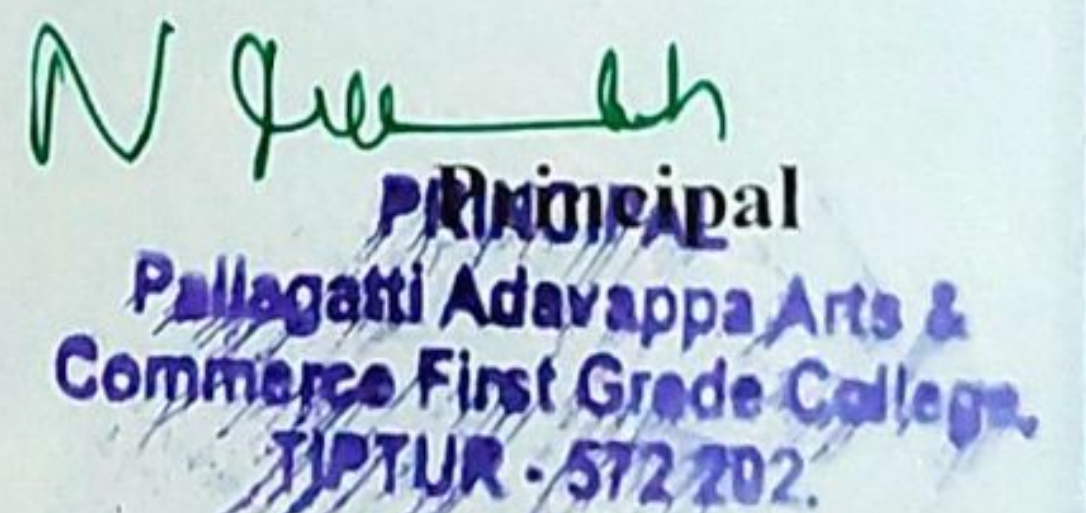 Principal
PRINCIPAL
Pallagatti Adavappa Arts &
Commerce First Grade College,
TIPTUR - 572 202.